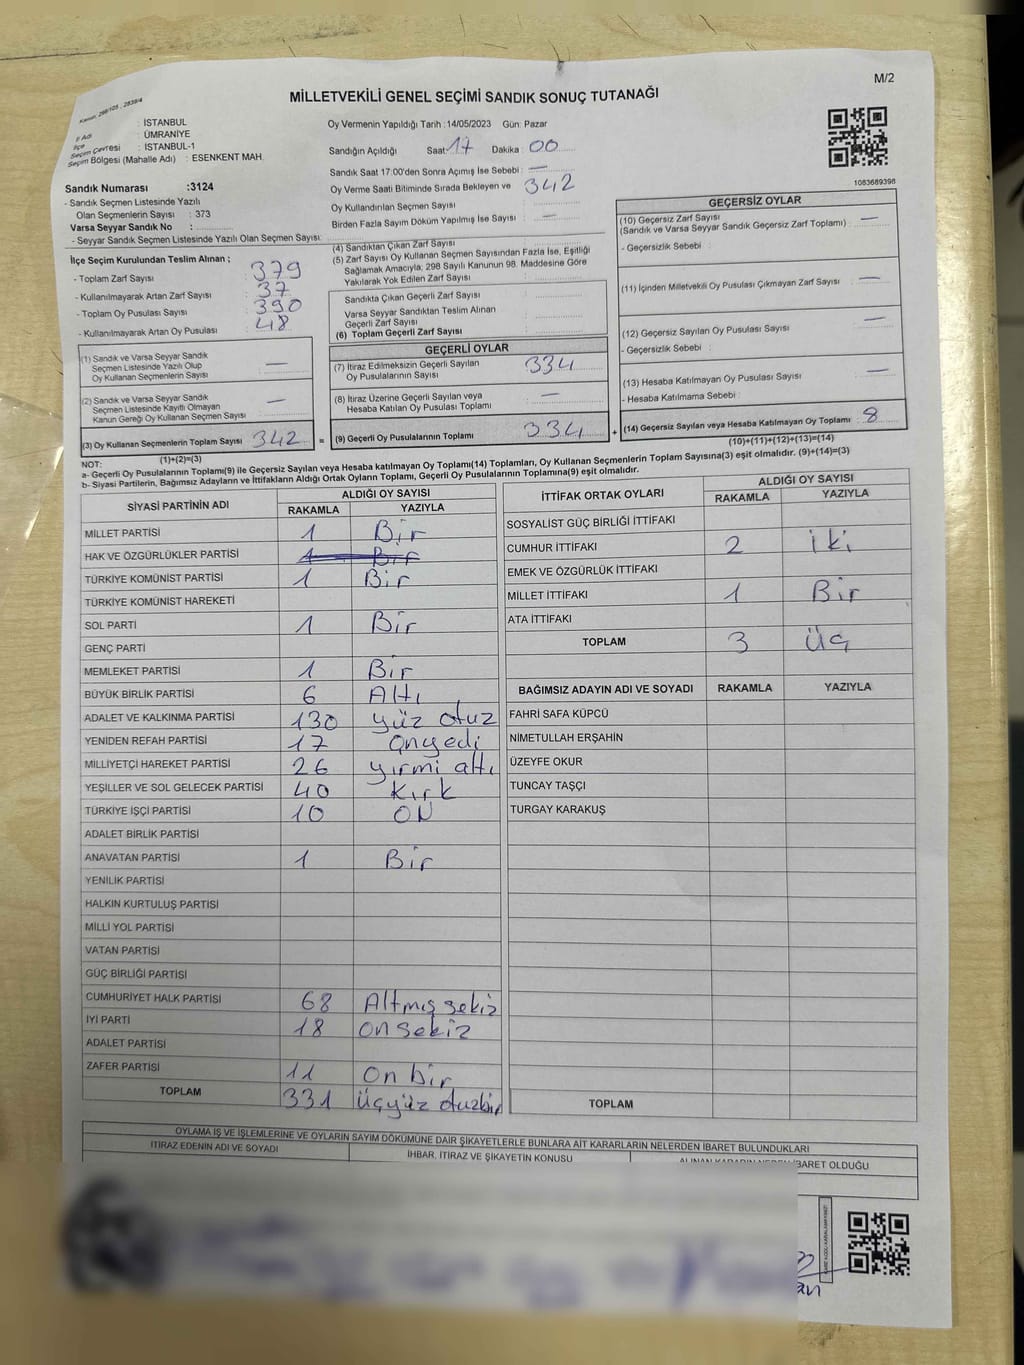 M/2
MİLLETVEKİLİ GENEL SEÇİMİ SANDIK SONUÇ TUTANAĞI
Kanun, 298/105 , 2839/4
İl Adı : İSTANBUL
İlçe : ÜMRANİYE
Seçim Çevresi : İSTANBUL-1
Seçim Bölgesi (Mahalle Adı) : ESENKENT MAH.
Sandık Numarası :3124
- Sandık Seçmen Listesinde Yazılı
Olan Seçmenlerin Sayısı : 373
Varsa Seyyar Sandık No :
- Seyyar Sandık Seçmen Listesinde Yazılı Olan Seçmen Sayısı:
Oy Vermenin Yapıldığı Tarih :14/05/2023 Gün: Pazar
Sandığın Açıldığı Saat: 17 Dakika : 00
Sandık Saat 17:00'den Sonra Açılmış İse Sebebi : —
Oy Verme Saati Bitiminde Sırada Bekleyen ve 342
Oy Kullandırılan Seçmen Sayısı
Birden Fazla Sayım Döküm Yapılmış İse Sayısı : —
1083689398
İlçe Seçim Kurulundan Teslim Alınan ;
- Toplam Zarf Sayısı : 379
- Kullanılmayarak Artan Zarf Sayısı : 37
- Toplam Oy Pusulası Sayısı : 390
- Kullanılmayarak Artan Oy Pusulası : 48
(1) Sandık ve Varsa Seyyar Sandık
Seçmen Listesinde Yazılı Olup
Oy Kullanan Seçmenlerin Sayısı : —
(2) Sandık ve Varsa Seyyar Sandık
Seçmen Listesinde Kayıtlı Olmayan
Kanun Gereği Oy Kullanan Seçmen Sayısı : —
(3) Oy Kullanan Seçmenlerin Toplam Sayısı : 342 =
(1)+(2)=(3)
(4) Sandıktan Çıkan Zarf Sayısı :
(5) Zarf Sayısı Oy Kullanan Seçmen Sayısından Fazla İse, Eşitliği
Sağlamak Amacıyla, 298 Sayılı Kanunun 98. Maddesine Göre
Yakılarak Yok Edilen Zarf Sayısı :
Sandıkta Çıkan Geçerli Zarf Sayısı :
Varsa Seyyar Sandıktan Teslim Alınan
Geçerli Zarf Sayısı :
(6) Toplam Geçerli Zarf Sayısı :
GEÇERLİ OYLAR
(7) İtiraz Edilmeksizin Geçerli Sayılan
Oy Pusulalarının Sayısı : 334
(8) İtiraz Üzerine Geçerli Sayılan veya
Hesaba Katılan Oy Pusulası Toplamı : —
(9) Geçerli Oy Pusulalarının Toplamı : 334 +
GEÇERSİZ OYLAR
(10) Geçersiz Zarf Sayısı
(Sandık ve Varsa Seyyar Sandık Geçersiz Zarf Toplamı) : —
- Geçersizlik Sebebi :
(11) İçinden Milletvekili Oy Pusulası Çıkmayan Zarf Sayısı : —
(12) Geçersiz Sayılan Oy Pusulası Sayısı : —
- Geçersizlik Sebebi :
(13) Hesaba Katılmayan Oy Pusulası Sayısı : —
- Hesaba Katılmama Sebebi :
(14) Geçersiz Sayılan veya Hesaba Katılmayan Oy Toplamı : 8
(10)+(11)+(12)+(13)=(14)
NOT:
a- Geçerli Oy Pusulalarının Toplamı(9) ile Geçersiz Sayılan veya Hesaba katılmayan Oy Toplamı(14) Toplamları, Oy Kullanan Seçmenlerin Toplam Sayısına(3) eşit olmalıdır. (9)+(14)=(3)
b- Siyasi Partilerin, Bağımsız Adayların ve İttifakların Aldığı Ortak Oyların Toplamı, Geçerli Oy Pusulalarının Toplamına(9) eşit olmalıdır.
SİYASİ PARTİNİN ADI ALDIĞI OY SAYISI
RAKAMLA YAZIYLA
MİLLET PARTİSİ 1 Bir
HAK VE ÖZGÜRLÜKLER PARTİSİ 1 Bir
TÜRKİYE KOMÜNİST PARTİSİ 1 Bir
TÜRKİYE KOMÜNİST HAREKETİ
SOL PARTİ 1 Bir
GENÇ PARTİ
MEMLEKET PARTİSİ 1 Bir
BÜYÜK BİRLİK PARTİSİ 6 Altı
ADALET VE KALKINMA PARTİSİ 130 yüz otuz
YENİDEN REFAH PARTİSİ 17 onyedi
MİLLİYETÇİ HAREKET PARTİSİ 26 yirmi altı
YEŞİLLER VE SOL GELECEK PARTİSİ 40 Kırk
TÜRKİYE İŞÇİ PARTİSİ 10 ON
ADALET BİRLİK PARTİSİ
ANAVATAN PARTİSİ 1 Bir
YENİLİK PARTİSİ
HALKIN KURTULUŞ PARTİSİ
MİLLİ YOL PARTİSİ
VATAN PARTİSİ
GÜÇ BİRLİĞİ PARTİSİ
CUMHURİYET HALK PARTİSİ 68 Altmış sekiz
İYİ PARTİ 18 on sekiz
ADALET PARTİSİ
ZAFER PARTİSİ 11 on bir
TOPLAM 331 üçyüz otuzbir
İTTİFAK ORTAK OYLARI ALDIĞI OY SAYISI
RAKAMLA YAZIYLA
SOSYALİST GÜÇ BİRLİĞİ İTTİFAKI
CUMHUR İTTİFAKI 2 iki
EMEK VE ÖZGÜRLÜK İTTİFAKI
MİLLET İTTİFAKI 1 Bir
ATA İTTİFAKI
TOPLAM 3 üç
BAĞIMSIZ ADAYIN ADI VE SOYADI RAKAMLA YAZIYLA
FAHRİ SAFA KÜPCÜ
NİMETULLAH ERŞAHİN
ÜZEYFE OKUR
TUNCAY TAŞÇI
TURGAY KARAKUŞ
TOPLAM
OYLAMA İŞ VE İŞLEMLERİNE VE OYLARIN SAYIM DÖKÜMÜNE DAİR ŞİKAYETLERLE BUNLARA AİT KARARLARIN NELERDEN İBARET BULUNDUKLARI
İTİRAZ EDENİN ADI VE SOYADI İHBAR, İTİRAZ VE ŞİKAYETİN KONUSU ALINAN KARARIN NEDEN İBARET OLDUĞU